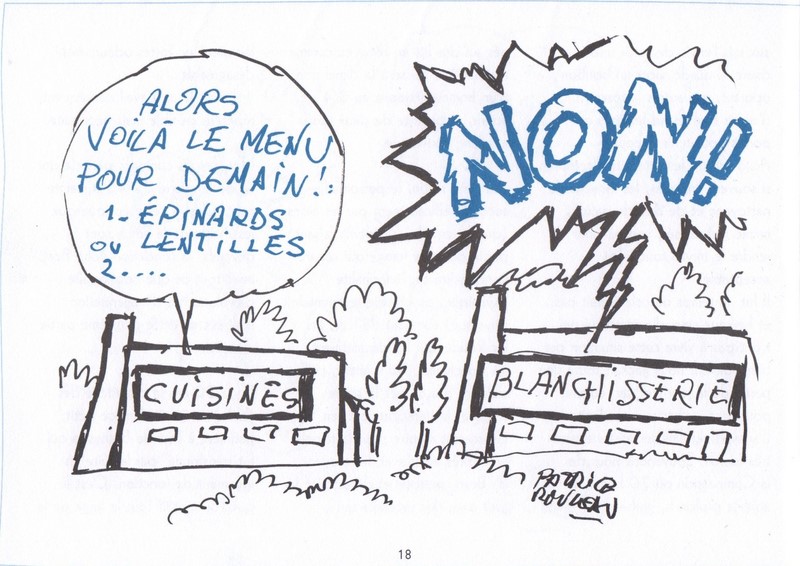 ALORS
VOILÀ LE MENU
POUR DEMAIN!:
1- ÉPINARDS
OU LENTILLES
2....
NON!
CUISINES
BLANCHISSERIE
18